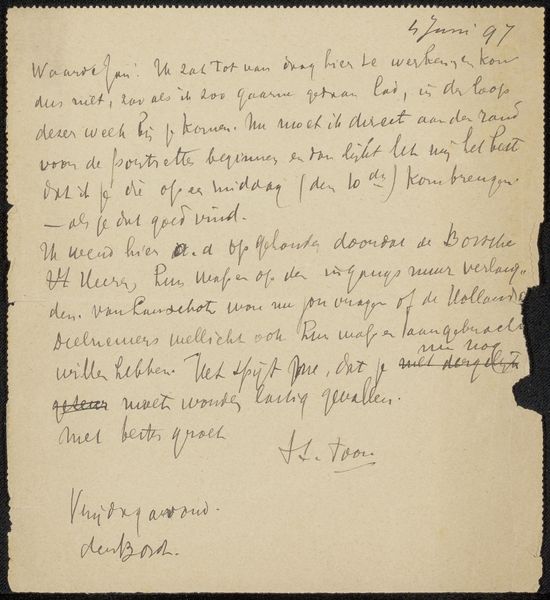 4 Juni 97
Waarde Jan! Ik zat tot van daag hier te werken en kon
dus niet, zooals ik zoo gaarne gedaan had, in de loop
dezer week bij je komen. Nu moet ik direct aan de rand
voor de portretten beginnen en dan lijkt het mij het best
dat ik je die op een middag (den 10 de) kom brengen
— als je dat goed vind.
Ik werd hier o.a. opgehouden doordat de Bossche
Heeren hun wapen op den ingangs muur verlang-
den. van Lanschot wou nu jou vragen of de Hollandsche
deelnemers wellicht ook hun wapen aangebracht
willen hebben. Het spijt me, dat je nu nog
moet worden lastig gevallen.
Met beste groet
tt. Toon
Vrijdag avond.
den Bosch.